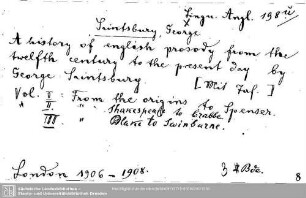 Lingu. Angl. 198
Saintsbury, George
A history of english prosody from the
twelfth century to the present day by
George Saintsbury. [Mit Taf.]
Vol. I : From the origins to Spenser.
" II : " Shakespeare to Crabbe.
" III " Blake to Swinburne.
London 1906 - 1908.
3 Bde.
8